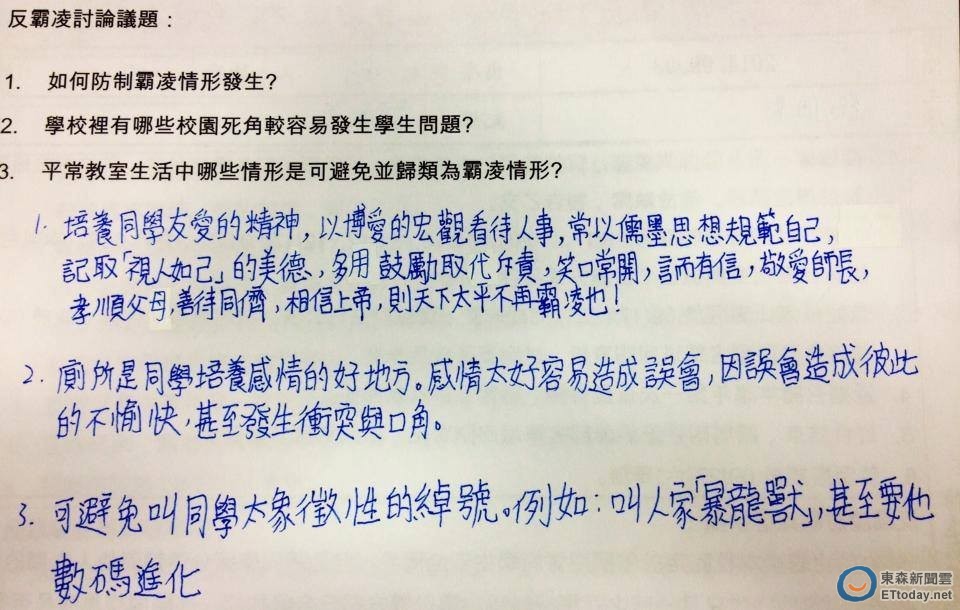 反霸凌討論議題：
1. 如何防制霸凌情形發生?
2. 學校裡有哪些校園死角較容易發生學生問題?
3. 平常教室生活中哪些情形是可避免並歸類為霸凌情形?
1. 培養同學友愛的精神，以博愛的宏觀看待人事，常以儒墨思想規範自己，
記取「視人如己」的美德，多用鼓勵取代斥責，笑口常開，言而有信，敬愛師長，
孝順父母，善待同儕，相信上帝，則天下太平不再霸凌也！
2. 廁所是同學培養感情的好地方。感情太好容易造成誤會，因誤會造成彼此
的不愉快，甚至發生衝突與口角。
3. 可避免叫同學太象徵性的綽號。例如：叫人家「暴龍獸」，甚至要他
數碼進化
東森新聞雲
ETtoday.net